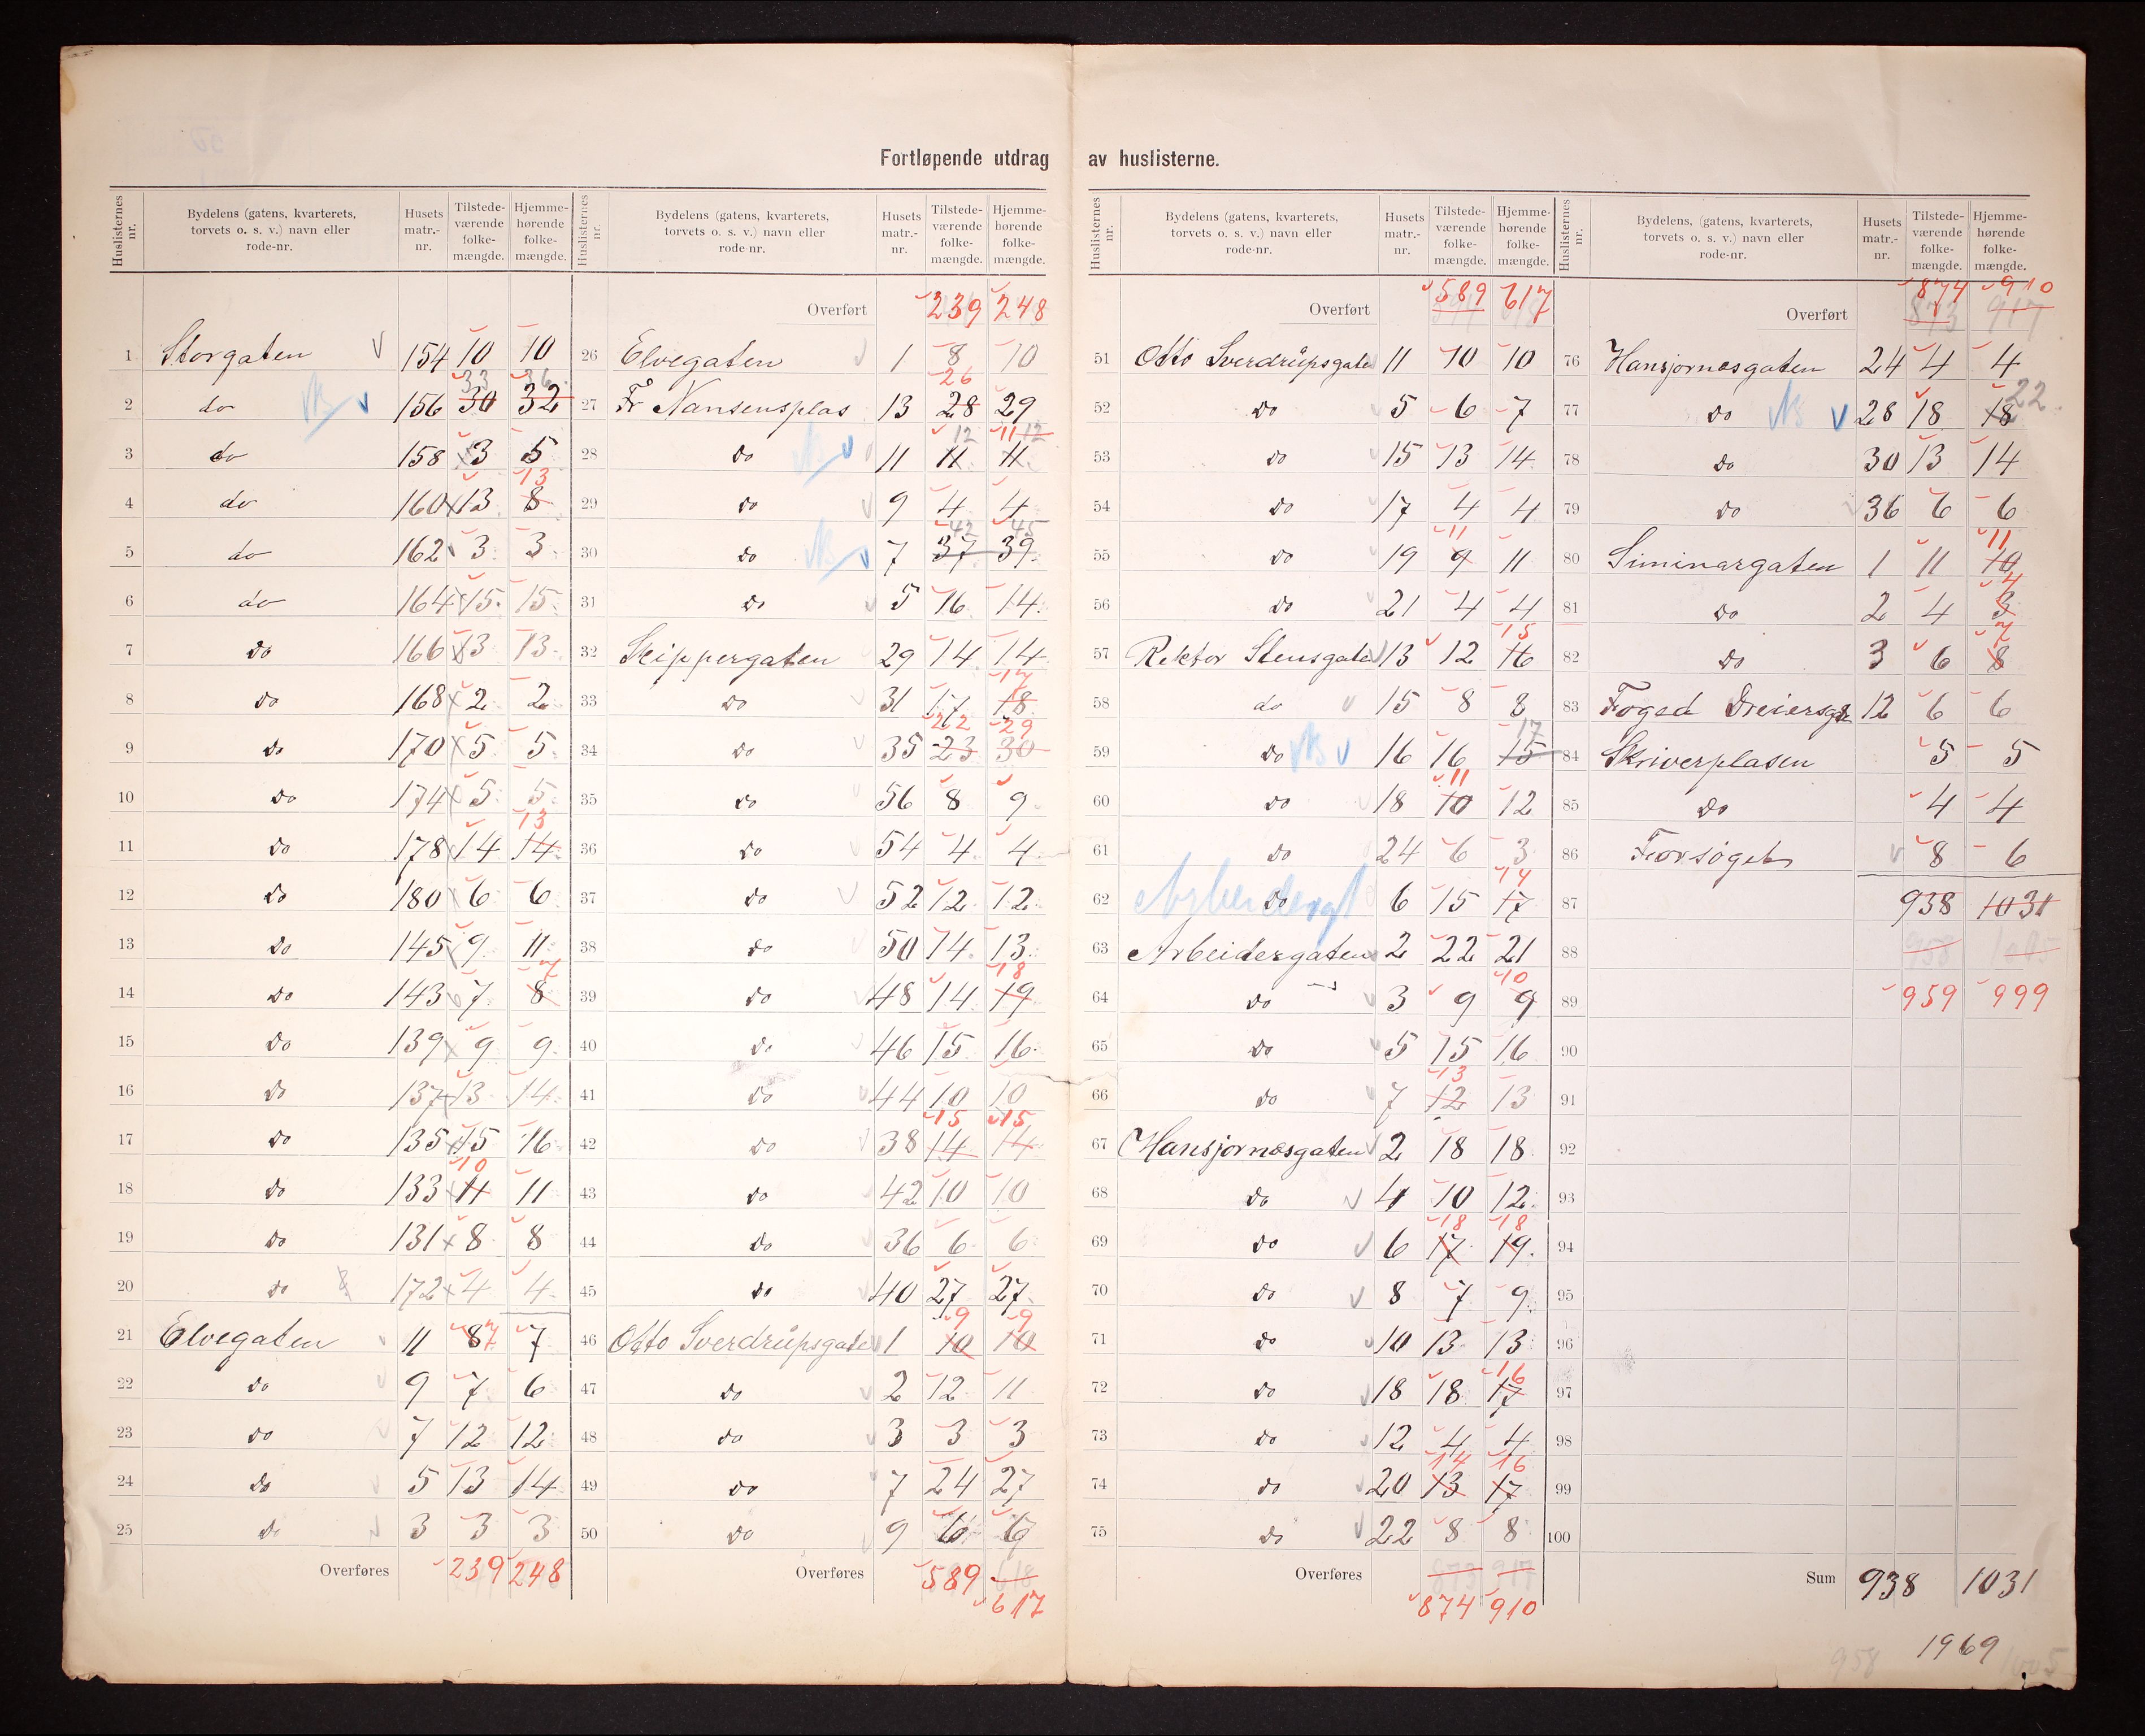 Fortløpende utdrag av huslisterne.
Huslisternes nr. | Bydelens (gatens, kvarterets, torvets o. s. v.) navn eller rode-nr. | Husets matr.-nr. | Tilstede-værende folke-mængde. | Hjemme-hørende folke-mængde.
1 Storgaten 154 10 10
2 do 156 30 33 32 36
3 do 158 3 5
4 do 160 13 8 13
5 do 162 3 3
6 do 164 15 15
7 do 166 13 13
8 do 168 2 2
9 do 170 5 5
10 do 174 5 5
11 do 178 14 14 13
12 do 180 6 6
13 do 145 9 11
14 do 143 7 8 7
15 do 139 9 9
16 do 137 13 14
17 do 135 15 16
18 do 133 11 10 11
19 do 131 8 8
20 do 172 4 4
21 Elvegaten 11 8 7 7
22 do 9 7 6
23 do 7 12 12
24 do 5 13 14
25 do 3 3 3
Overføres 239 248
Huslisternes nr. | Bydelens (gatens, kvarterets, torvets o. s. v.) navn eller rode-nr. | Husets matr.-nr. | Tilstede-værende folke-mængde. | Hjemme-hørende folke-mængde.
Overført 239 248
26 Elvegaten 1 8 10
27 Fr Nansensplas 13 28 26 29
28 do 11 11 12 11 11 12
29 do 9 4 4
30 do 7 37 42 39 45
31 do 5 16 14
32 Skippergaten 29 14 14
33 do 31 17 18 17
34 do 35 23 22 30 29
35 do 56 8 9
36 do 54 4 4
37 do 52 12 12
38 do 50 14 13
39 do 48 14 19 18
40 do 46 15 16
41 do 44 10 10
42 do 38 14 15 14 15
43 do 42 10 10
44 do 36 6 6
45 do 40 27 27
46 Otto Sverdrüpsgate 1 10 9 10 9
47 do 2 12 11
48 do 3 3 3
49 do 7 24 27
50 do 9 6 6
Overføres 589 618
617
Huslisternes nr. | Bydelens (gatens, kvarterets, torvets o. s. v.) navn eller rode-nr. | Husets matr.-nr. | Tilstede-værende folke-mængde. | Hjemme-hørende folke-mængde.
Overført 589 617
51 Otto Sverdrüpsgate 11 10 10
52 do 5 6 7
53 do 15 13 14
54 do 17 4 4
55 do 19 9 11 11
56 do 21 4 4
57 Rektor Stensgate 13 12 16 15
58 do 15 8 8
59 do 16 16 15 17
60 do 18 10 11 12
61 do 24 6 3
62 do Arbeidergt 6 15 17 14
63 Arbeidergaten 2 22 21
64 do 3 9 9 10
65 do 5 15 16
66 do 7 12 13 13
67 Hansjornesgaten 2 18 18
68 do 4 10 12
69 do 6 17 18 19 18
70 do 8 7 9
71 do 10 13 13
72 do 18 18 17 16
73 do 12 4 4
74 do 20 13 14 17 16
75 do 22 8 8
Overføres 873 917
874 910
Huslisternes nr. | Bydelens, (gatens, kvarterets, torvets o. s. v.) navn eller rode-nr. | Husets matr.-nr. | Tilstede-værende folke-mængde. | Hjemme-hørende folke-mængde.
874 910
Overført 873 917
76 Hansjornesgaten 24 4 4
77 do 28 18 18 22
78 do 30 13 14
79 do 36 6 6
80 Siminargaten 1 11 10 11
81 do 2 4 3 4
82 do 3 6 8 7
83 Foged Dreiersgt 12 6 6
84 Skriverplasen 5 5
85 do 4 4
86 Forsøget 8 6
87 938 1031
88 958 1005
89 959 999
90
91
92
93
94
95
96
97
98
99
100
Sum 938 1031
1969
958 1005